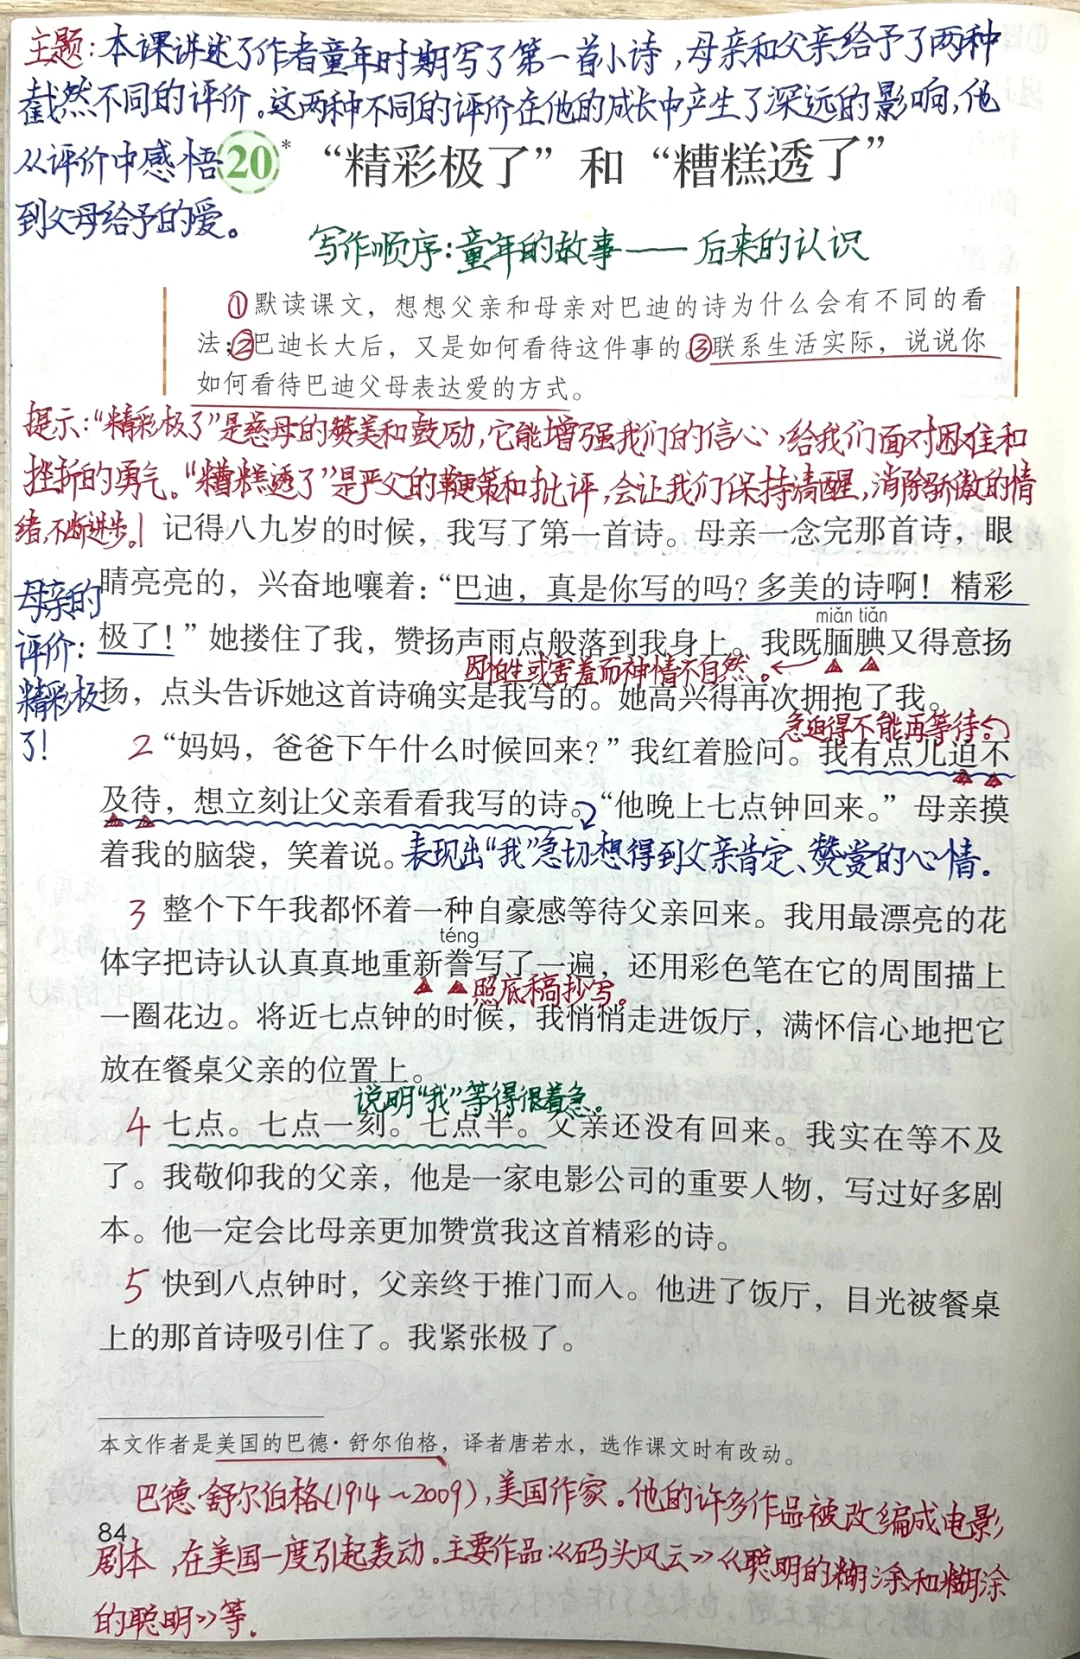 主题:本课讲述了作者童年时期写了第一首小诗,母亲和父亲给予了两种
截然不同的评价。这两种不同的评价在他的成长中产生了深远的影响,他
从评价中感悟
到父母给予的爱。
20* “精彩极了”和“糟糕透了”
写作顺序:童年的故事——后来的认识
①默读课文,想想父亲和母亲对巴迪的诗为什么会有不同的看
法;②巴迪长大后,又是如何看待这件事的。③联系生活实际,说说你
如何看待巴迪父母表达爱的方式。
提示:“精彩极了”是慈母的赞美和鼓励,它能增强我们的信心,给我们面对困难和
挫折的勇气。“糟糕透了”是严父的鞭策和批评,会让我们保持清醒,消除骄傲的情
绪,不断进步。
1 记得八九岁的时候,我写了第一首诗。母亲一念完那首诗,眼
睛亮亮的,兴奋地嚷着:“巴迪,真是你写的吗?多美的诗啊!精彩
miǎn tiǎn
极了!”她搂住了我,赞扬声雨点般落到我身上。我既腼腆又得意扬
因怕生或害羞而神情不自然。
扬,点头告诉她这首诗确实是我写的。她高兴得再次拥抱了我。
母亲的
评价:
精彩极
了!
急迫得不能再等待。
2 “妈妈,爸爸下午什么时候回来?”我红着脸问。我有点儿迫不
及待,想立刻让父亲看看我写的诗。“他晚上七点钟回来。”母亲摸
着我的脑袋,笑着说。
表现出“我”急切想得到父亲肯定、赞赏的心情。
3 整个下午我都怀着一种自豪感等待父亲回来。我用最漂亮的花
téng
体字把诗认认真真地重新誊写了一遍,还用彩色笔在它的周围描上
照底稿抄写。
一圈花边。将近七点钟的时候,我悄悄走进饭厅,满怀信心地把它
放在餐桌父亲的位置上。
说明“我”等得很着急。
4 七点。七点一刻。七点半。父亲还没有回来。我实在等不及
了。我敬仰我的父亲,他是一家电影公司的重要人物,写过好多剧
本。他一定会比母亲更加赞赏我这首精彩的诗。
5 快到八点钟时,父亲终于推门而入。他进了饭厅,目光被餐桌
上的那首诗吸引住了。我紧张极了。
本文作者是美国的巴德·舒尔伯格,译者唐若水,选作课文时有改动。
巴德·舒尔伯格(1914~2009),美国作家。他的许多作品被改编成电影
84
剧本,在美国一度引起轰动。主要作品:《码头风云》《聪明的糊涂和糊涂
的聪明》等.